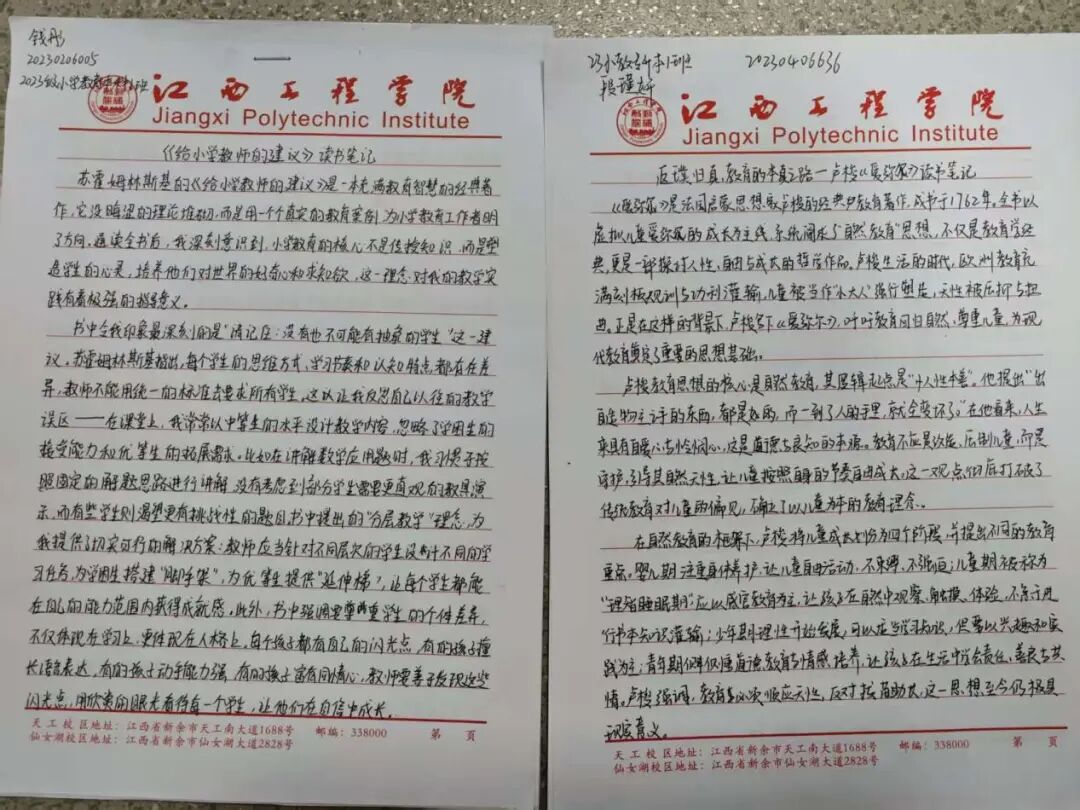 钱彤
20230206005
2023级小学教育专科1班
江西工程学院
Jiangxi Polytechnic Institute
《给小学教师的建议》读书笔记
苏霍姆林斯基的《给小学教师的建议》是一本充满教育智慧的经典著
作，它没晦涩的理论堆砌，而是用一个个真实的教育案例，为小学教育工作者明
了方向。通读全书后，我深刻意识到，小学教育的核心不是传授知识，而是塑
造学生的心灵，培养他们对世界的好奇心和求知欲，这一理念对我的教学实
践有着极强的指导意义。
书中令我印象最深刻的是"请记住：没有也不可能有抽象的学生"这一建
议。苏霍姆林斯基指出，每个学生的思维方式、学习节奏和认知特点都存在差
异，教师不能用统一的标准去要求所有学生。这让我反思自己以往的教学
误区——在课堂上，我常常以中等生的水平设计教学内容，忽略了学困生的
接受能力和优等生的拓展需求。比如在讲解数学应用题时，我习惯于按
照固定的解题思路进行讲解，没有考虑到部分学生需要更直观的教具演
示，而有些学生则渴望更有挑战性的题目。书中提出的"分层教学"理念，为
我提供了切实可行的解决方案：教师应当针对不同层次的学生设计不同的学
习任务，为学困生搭建"脚手架"，为优等生提供"延伸梯"，让每个学生都能
在自己的能力范围内获得成就感。此外，书中强调要尊重学生的个体差异，
不仅体现在学习上，更体现在人格上。每个孩子都有自己的闪光点，有的孩子擅
长语言表达，有的孩子动手能力强，有的孩子富有同情心，教师要善于发现这些
闪光点，用欣赏的眼光看待每一个学生，让他们在自信中成长。
天工校区地址：江西省新余市天工南大道1688号 邮编：338000 第 页
仙女湖校区地址：江西省新余市仙女湖大道2828号
23小教专本1班 20230406636
江西工程学院
Jiangxi Polytechnic Institute
返璞归真，教育的本真之路—卢梭《爱弥尔》读书笔记
《爱弥尔》是法国启蒙思想家卢梭的经典教育著作，成书于1762年。全书以
虚拟儿童爱弥尔的成长为主线，系统阐述了"自然教育"思想，不仅是教育学经
典，更是一部探讨人性、自由与成长的哲学作品。卢梭生活的时代，欧洲教育充
满刻板规训与功利灌输，儿童被当作"小大人"强行塑造，天性被压抑与扭
曲。正是在这样的背景下，卢梭写下《爱弥尔》，呼吁教育回归自然、尊重儿童，为现
代教育奠定了重要的思想基础。
卢梭教育思想的核心是自然教育，其逻辑起点是"人性本善"。他提出"出
自造物主之手的东西，都是好的，而一到了人的手里，就全变坏了。"在他看来，人生
来具有自爱心与怜悯心，这是道德与良知的来源。教育不应是改造、压制儿童，而是
守护、引导其自然天性，让儿童按照自身的节奏自由成长。这一观点彻底打破了
传统教育对儿童的偏见，确立了以儿童为本的教育理念。
在自然教育的框架下，卢梭将儿童成长划分为四个阶段，并提出不同的教育
重点。婴儿期注重身体养护，让儿童自由活动，不束缚、不强迫；儿童期被称为
"理智睡眠期"应以感官教育为主，让孩子在自然中观察、触摸、体验，不急于进
行书本知识灌输；少年期理性开始发展，可以适当学习知识，但要以兴趣和实
践为主；青年期侧重道德教育与情感培养，让孩子在生活中学会责任、善良与共
情。卢梭强调，教育必须顺应天性，反对拔苗助长，这一思想至今仍极具
现实意义。
天工校区地址：江西省新余市天工南大道1688号 邮编：338000 第 页
仙女湖校区地址：江西省新余市仙女湖大道2828号